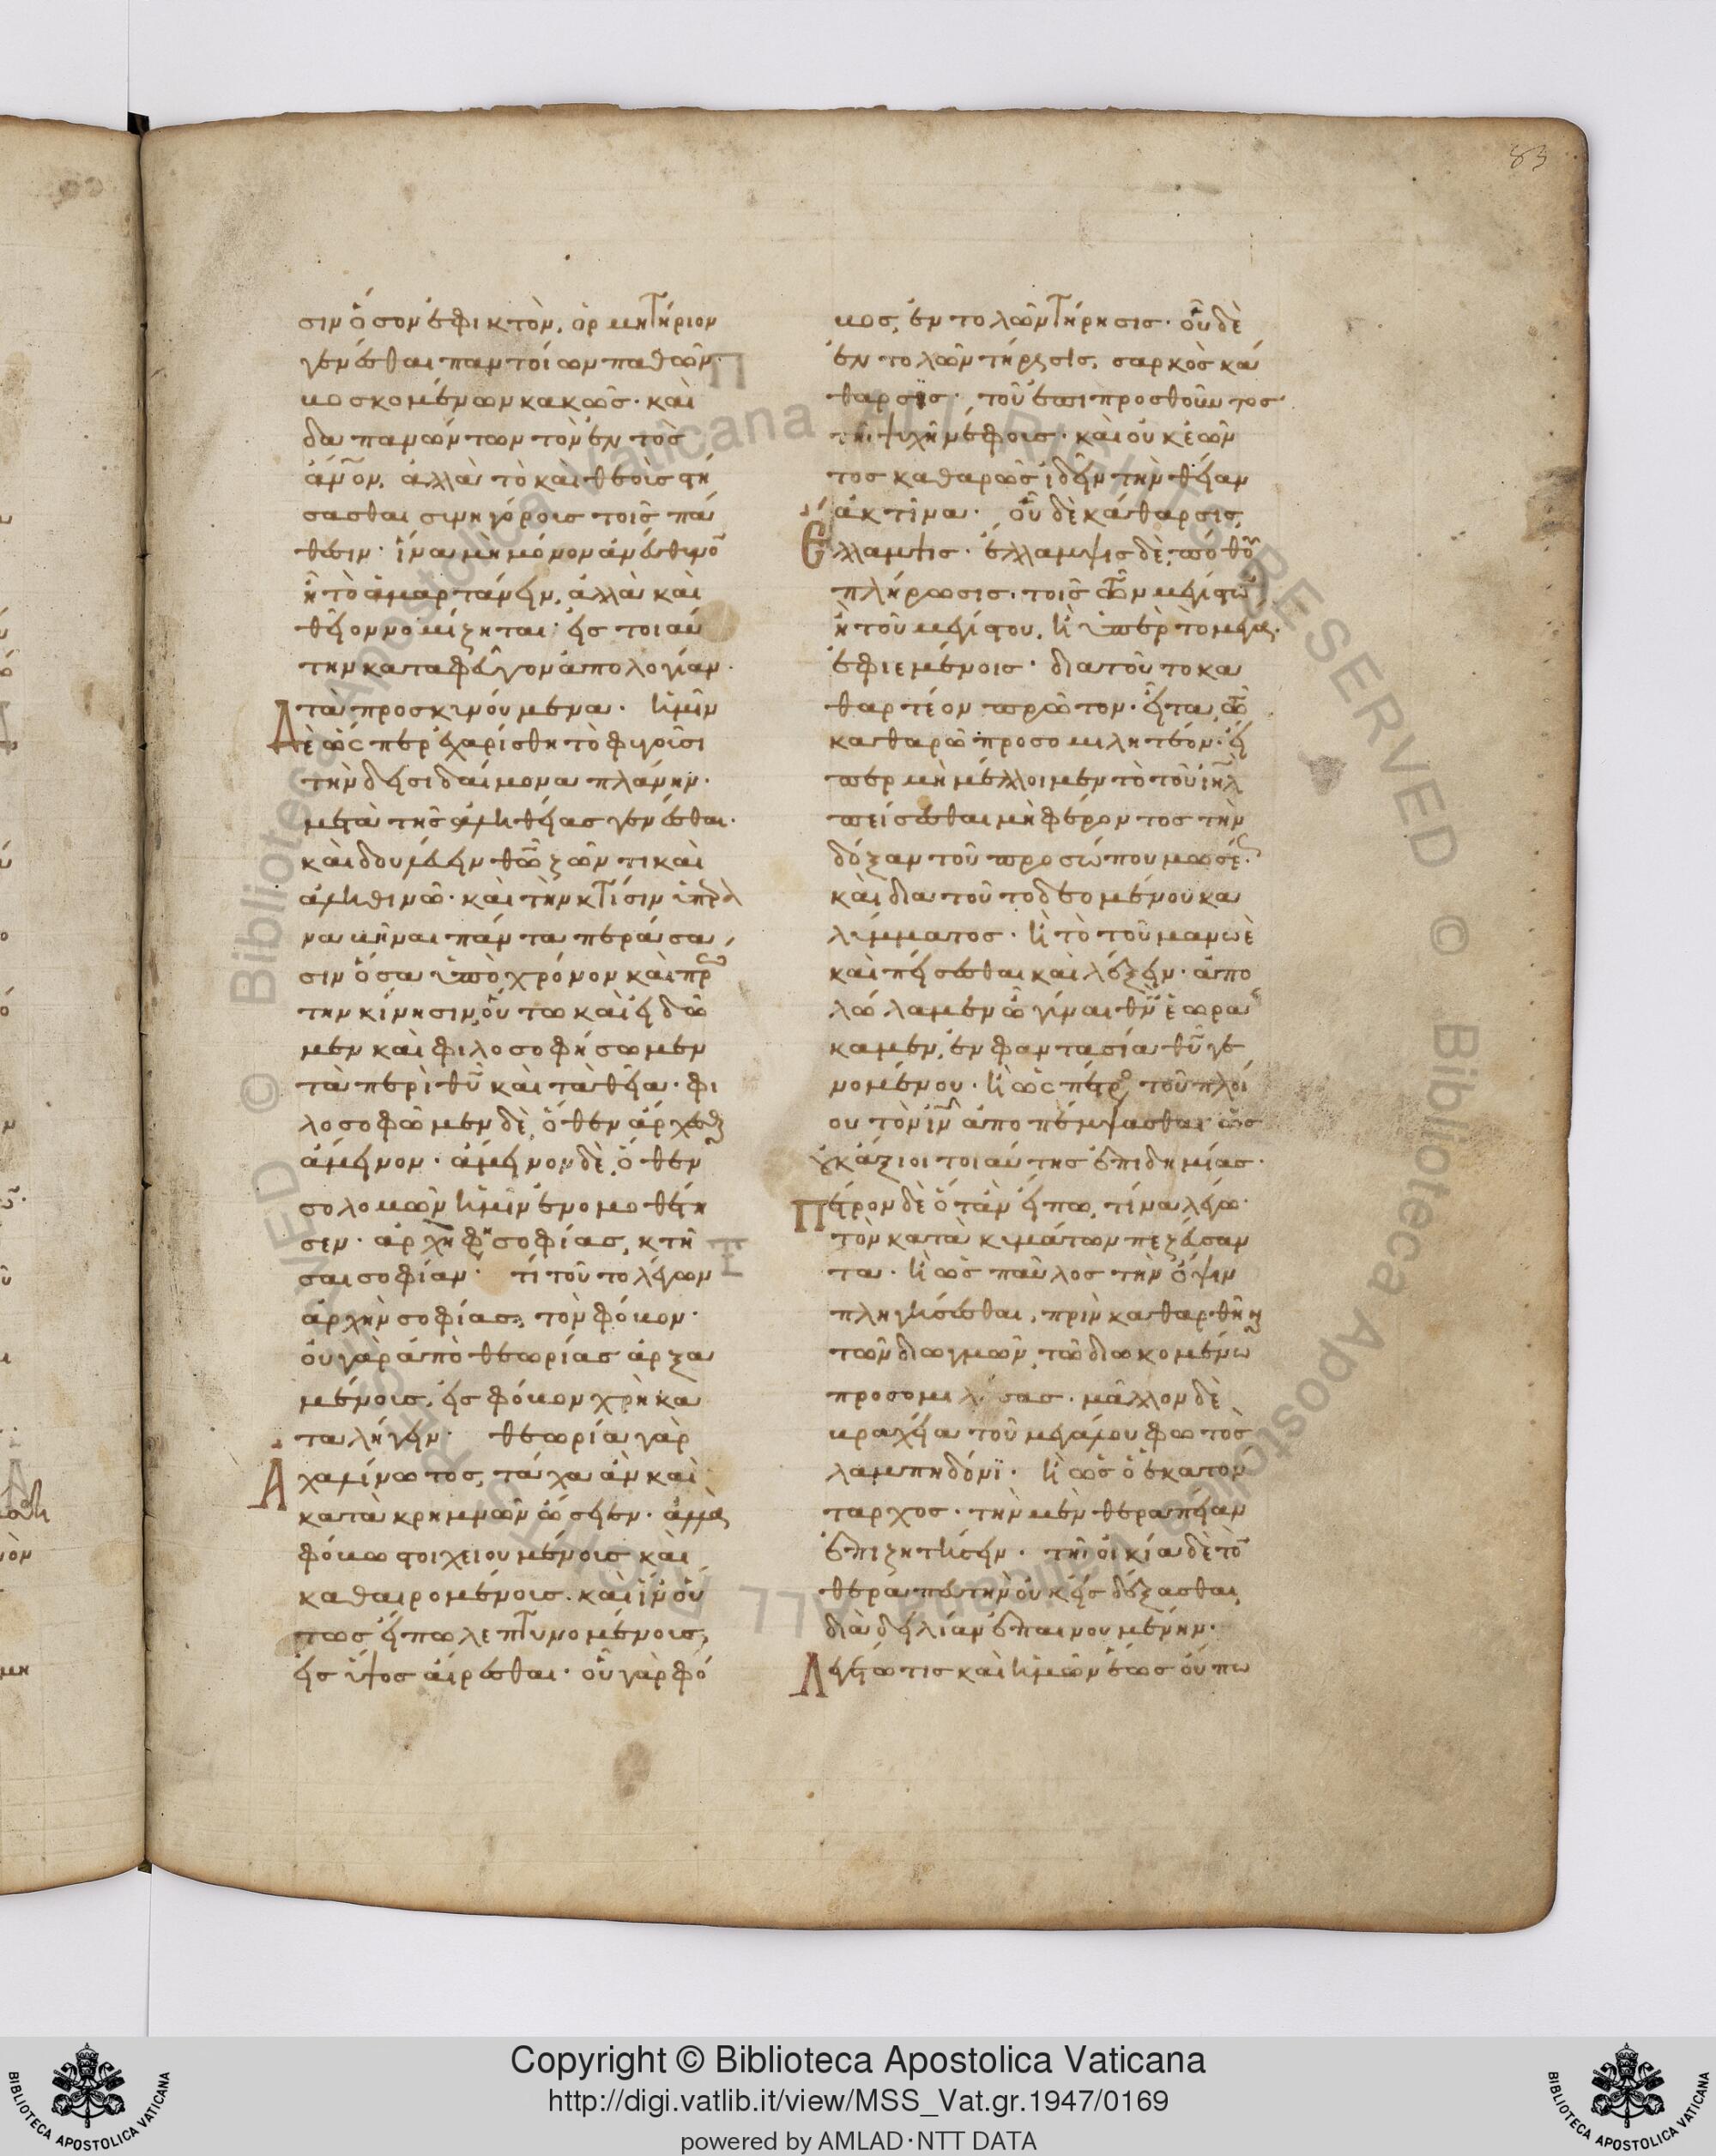 83
σιν ὅσον ἐφικτὸν, ὁρμητήριον
γενέσθαι παντοίων παθῶν·
βοσκομένων κακῶς· καὶ
δαπανώντων τὸν ἐντὸς
ἄν̅ον, ἀλλὰ τὸ καὶ θεοὺς στή
σασθαι συνηγόρους τοῖς πά
θεσιν· ἵνα μὴ μόνον ἀνεύθυνο̅
ἢ τὸ ἁμαρτάνειν, ἀλλὰ καὶ
θεῖον νομίζηται· εἰς τοιαύ
την καταφεῦγον ἀπολογίαν·
τὰ προσκυνούμενα· ἡμῖν
Δὲ ὥσπερ ἐχαρίσθη τὸ φυγοῦσι
τὴν δεισιδαίμονα πλάνην·
μετὰ τῆς ἀληθείας γενέσθαι·
καὶ δουλεύειν θῶ ζῶντι καὶ
ἀληθινῶ· καὶ τὴν κτίσιν ὑπερα
ναβῆναι πάντα περάσα
σιν ὅσα ὑπὸ χρόνον καὶ πρώ
την κίνησιν, οὕτω καὶ εἰδῶ
μεν καὶ φιλοσοφήσωμεν
τὰ περὶ θῦ καὶ τὰ θεῖα· φι
λοσοφῶμεν δὲ, ὅθεν ἄρχεσθ
ἄμεινον· ἄμεινον δὲ, ὅθεν
σολομῶν ἡμῖν ἐνομοθέτη
σεν· ἀρχὴ φη σοφίας, κτῆ
σαι σοφίαν· τί τοῦτο λέγων
ἀρχὴν σοφίας; τὸν φόβον·
οὐ γὰρ ἀπὸ θεωρίας ἀρξα
μένους, εἰς φόβον χρὴ κα
ταλήγειν· θεωρία γὰρ
Ἀχαλίνωτος, τάχα ἂν καὶ
κατὰ κρημνῶν ὤσειεν· ἀλλὰ
φόβω στοιχειουμένους καὶ
καθαιρομένους· καὶ ἵν οὕ
τως εἴπω λεπτυνομένους,
εἰς ὕψος αἴρεσθαι· οὗ γὰρ φό
βος, ἐντολῶν τήρησις· οὗ δὲ
ἐντολῶν τήρησις, σαρκὸς κά
θαρσις· τοῦ ἐπιπροσθοῦντος
τῆ ψυχῆ νέφους· καὶ οὐκ ἐῶν
τος καθαρῶς ἰδεῖν τὴν θείαν
ἀκτῖνα· οὗ δὲ κάθαρσις
Ἔλλαμψις· ἔλλαμψις δὲ, πόθου
πλήρωσις· τοῖς τῶν μεγίστων,
ἢ τοῦ μεγίστου, ἢ ὑπὲρ τὸ μέγα·
ἐφιεμένοις· διὰ τοῦτο κα
θαρτέον πρῶτον· εἶτα τῶ
καθαρῶ προσομιλητέον· εἴ
περ μὴ μέλλοιμεν τὸ τοῦ ἰηλ
πείσεσθαι μὴ φέροντος τὴν
δόξαν τοῦ προσώπου μωσέως
καὶ διὰ τοῦτο δεομένου κα
λύμματος· ἢ τὸ τοῦ μανωὲ
καὶ πείσεσθαι καὶ λέξειν· ἀπο
λώλαμεν ὦ γύναι θν̅ ἑωρά
καμεν, ἐν φαντασία θῦ γε
νομένου· ἢ ὡς πέτρος τοῦ πλοί
ου τὸν ιν̅ ἀποπέμψασθαι ὡς
οὐκ ἄξιοι τοιαύτης ἐπιδημίας·
Πέτρον δὲ ὅταν εἴπω, τίνα λέγω·
τὸν κατὰ κυμάτων πεζεύσαν
τα· ἢ ὡς παῦλος τὴν ὄψιν
πληγήσεσθαι, πρὶν καθαρθῆναι
τῶν διωγμῶν, τῶ διωκομένω
προσομιλήσας· μᾶλλον δὲ
βραχεία τοῦ μεγάλου φωτὸς
λαμπηδόνϊ· ἢ ὡς ὁ ἑκατόν
ταρχος· τὴν μὲν θεραπείαν
ἐπιζητήσειν· τῆ οἰκία δὲ το̅
θεραπευτὴν οὐκ εἰσδέξασθαι,
διὰ δειλίαν ἐπαινουμένην·
Λεγέτω τις καὶ ἡμῶν ἕως οὔπω
Copyright © Biblioteca Apostolica Vaticana
http://digi.vatlib.it/view/MSS_Vat.gr.1947/0169
powered by AMLAD·NTT DATA
BIBLIOTECA APOSTOLICA VATICANA
BIBLIOTECA APOSTOLICA VATICANA